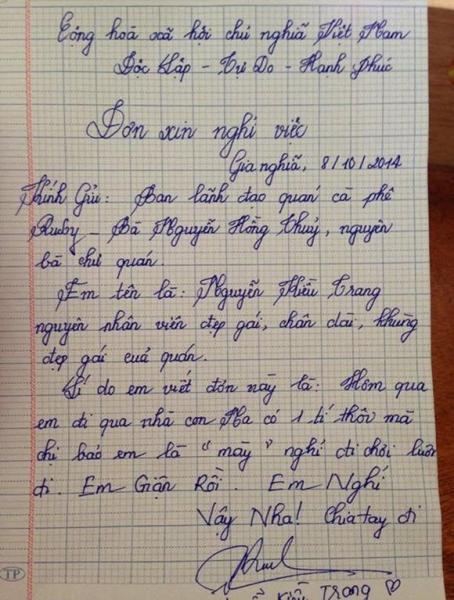 Cộng hoà xã hội chủ nghĩa Việt Nam
Độc Lập - Tự Do - Hạnh Phúc
Đơn xin nghỉ việc
Gia nghĩa, 8/10/2014
Kính Gửi: Ban lãnh đạo quán cà phê
Ruby - Bà Nguyễn Hồng Thuỷ, nguyên
bà chủ quán.
Em tên là: Nguyễn Kiều Trang
nguyên nhân viên đẹp gái, chân dài, khùng
đẹp gái của quán.
Lí do em viết đơn này là: Hôm qua
em đi qua nhà con Na có 1 tí thôi mà
chị bảo em là "mày" nghỉ đi chơi luôn
đi. Em Giận Rồi. Em Nghỉ
Vậy Nha! Chia tay đi
Kiều Trang
TP